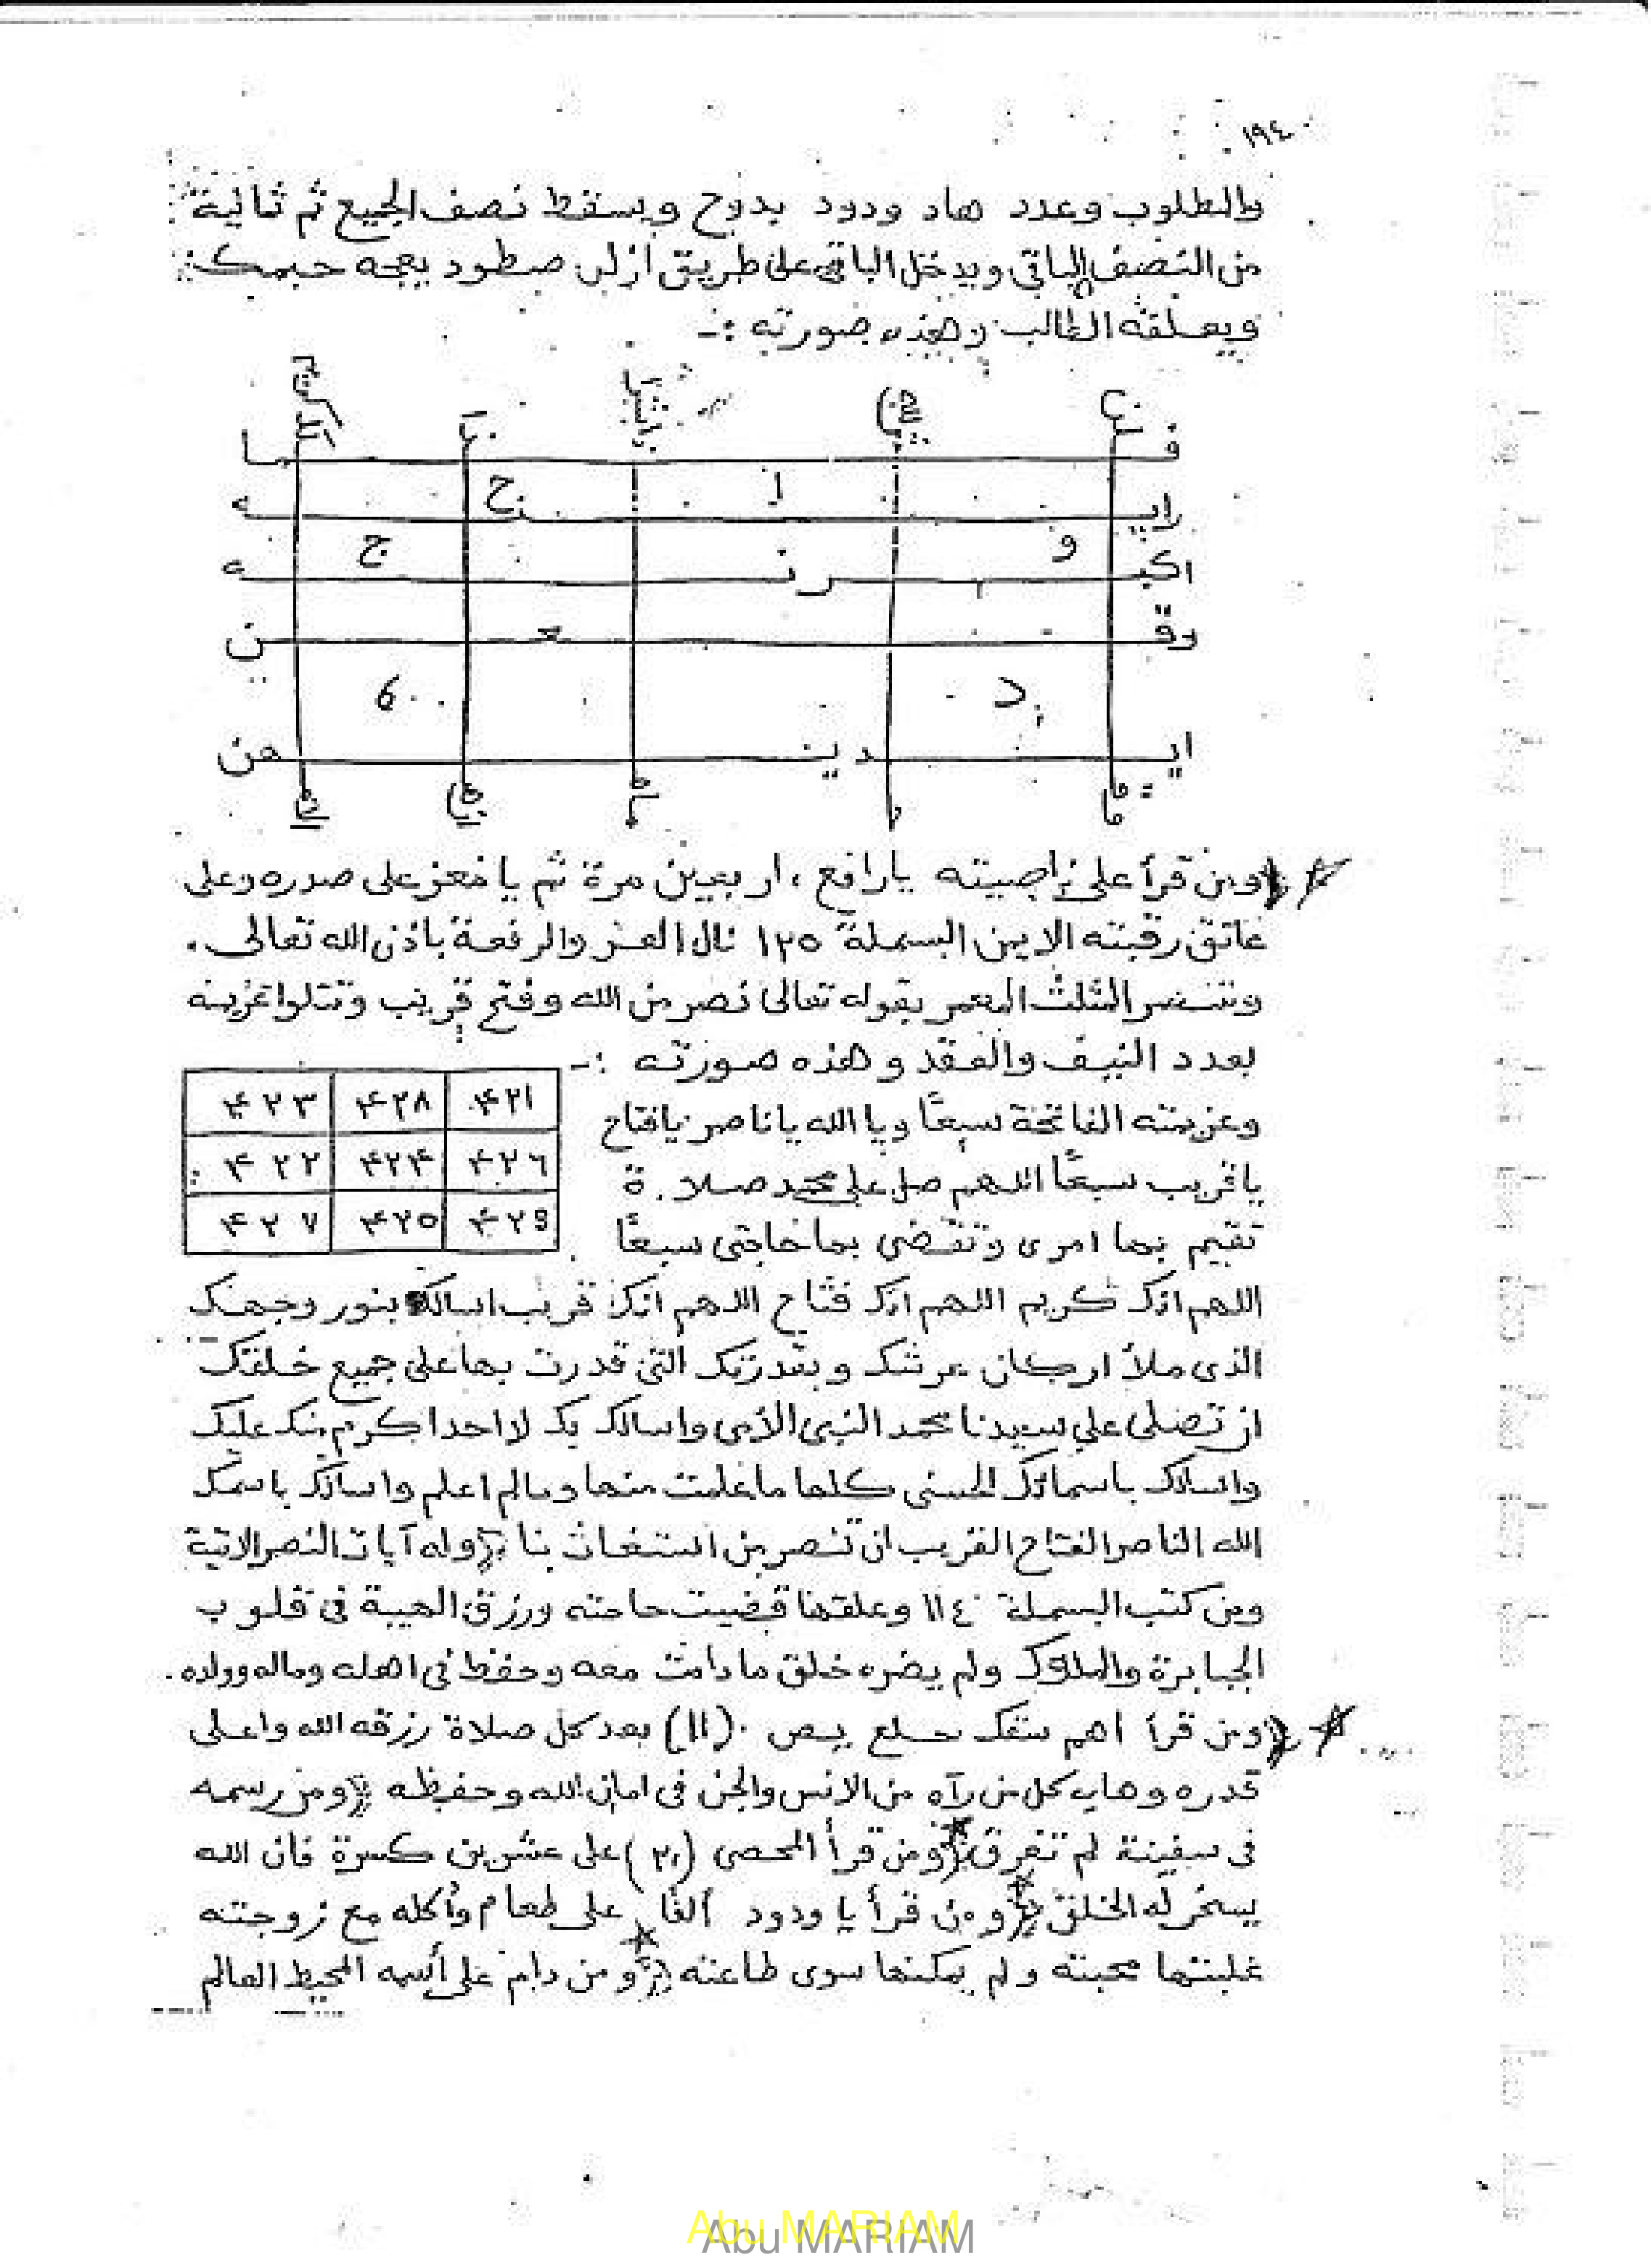 ١٩٤
والمطلوب وعدد هاد ودود بدوح ويسقط نصف الجميع ثم ثمانية
من النصف الباقي ويدخل الباقي على طريق ازلى صطود بعجه حبمك
ويعلقه الطالب وهذه صورته :ـ
ا
ح
و
ج
د
ومن قرأ على ناصيته يارافع اربعين مرة ثم يا معز على صدره وعلى
عاتق رقبته الايمن البسملة ١٢٥ نال العز والرفعة باذن الله تعالى .
المثلث المعمر بقوله تعالى نصر من الله وفتح قريب وتتلوا عزيمته
بعدد النيف والعقد وهذه صورته :ـ
٤٢١ ٤٢٨ ٤٢٣
٤٢٦ ٤٢٤ ٤٢٢
٤٢٩ ٤٢٥ ٤٢٧
وعزيمته الفاتحة سبعًا ويا الله ياناصر يافتاح
ياقريب سبعًا اللهم صل على محمد صلاة
تقيم بها امرى وتقضى بها حاجتى سبعًا
اللهم انك كريم اللهم انك فتاح اللهم انك قريب اسالك بنور وجهك
الذى ملأ اركان عرشك وبقدرتك التى قدرت بها على جميع خلقك
ان تصلى على سيدنا محمد النبى الأمى واسالك بك لا احد اكرم منك عليك
واسالك باسمائك الحسنى كلها ما علمت منها ومالم اعلم واسالك باسمك
الله الناصر الفتاح القريب ان تنصر من استغاث بنا وله آيات النصر الاتية
ومن كتب البسملة ١١٤٠ وعلقها قضيت حاجته ورزق الهيبة فى قلوب
الجبابرة والملوك ولم يضره خلق مادامت معه وحفظ فى اهله وماله وولده .
ومن قرأ اهم سقك حلع يص (١١٠) بعد كل صلاة رزقه الله واعلى
قدره وهابه كل من رآه من الانس والجن فى امان الله وحفظه ومن رسمه
فى سفينة لم تغرق ومن قرأ المحصى (٢٠) على عشرين كسرة فان الله
يسخر له الخلق ومن قرأ يا ودود ألفًا على طعام وأكله مع زوجته
غلبتها محبته ولم يمكنها سوى طاعته ومن دام على أسمه المحيط العالم
Abu MARIAM